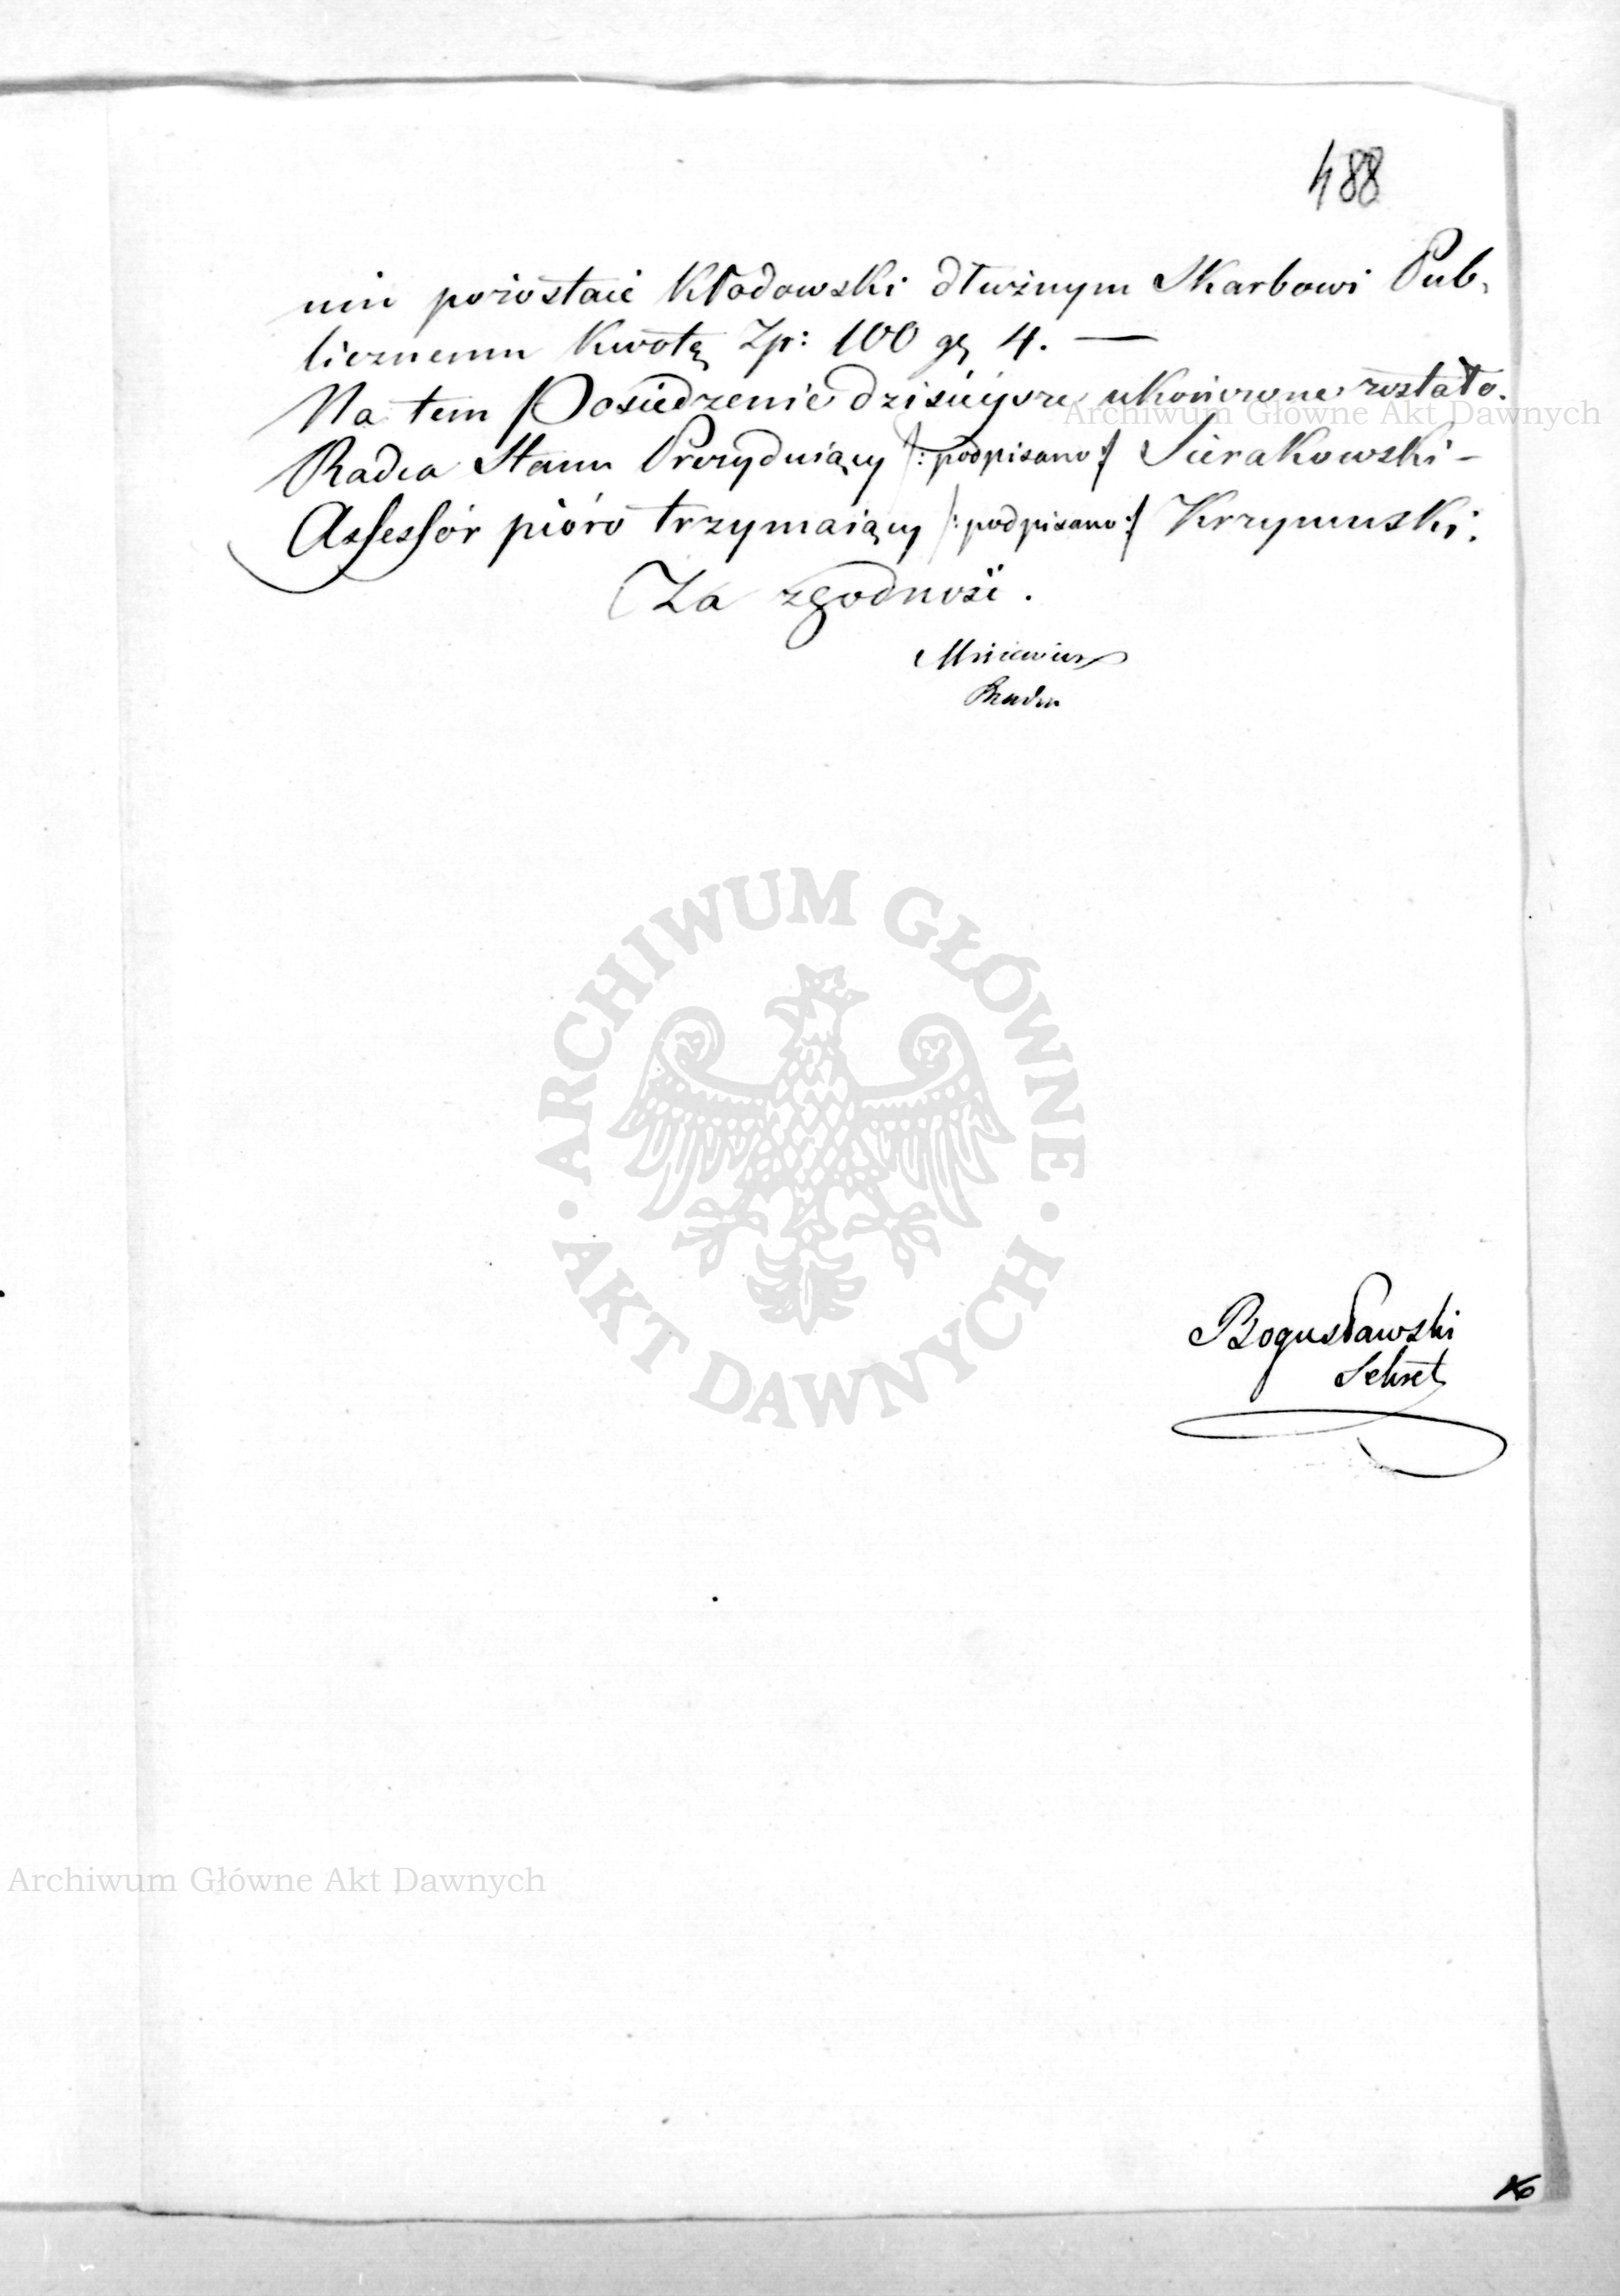 488
nin pozostaie Kłodowski dłużnym Skarbowi Pub,
licznemu Kwotę Zp: 100 gr 4. —
Na tem Posiedzenie dzisieysze ukończone zostało.
Radca Stanu Prezyduiący /: podpisano :/ Sierakowski –
Assessór pióro trzymaiący /: podpisano :/ Krzymuski.
Za zgodność.
Radca
Bogusławski
Sekret
ARCHIWUM GŁÓWNE AKT DAWNYCH
Archiwum Główne Akt Dawnych
Archiwum Główne Akt Dawnych